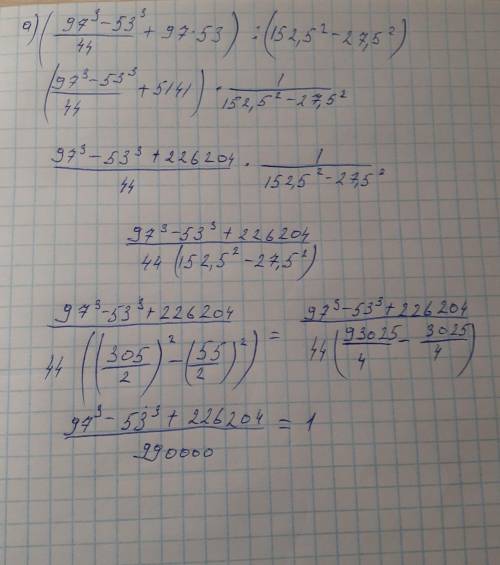 а) ( (97³ − 53³)/44 + 97·53 ) : (152,5² − 27,5²)
( (97³ − 53³)/44 + 5141 ) · 1/(152,5² − 27,5²)
(97³ − 53³ + 226204)/44 · 1/(152,5² − 27,5²)
(97³ − 53³ + 226204)/(44 (152,5² − 27,5²))
(97³ − 53³ + 226204)/(44 ((305/2)² − (55/2)²)) = (97³ − 53³ + 226204)/(44 (93025/4 − 3025/4))
(97³ − 53³ + 226204)/990000 = 1